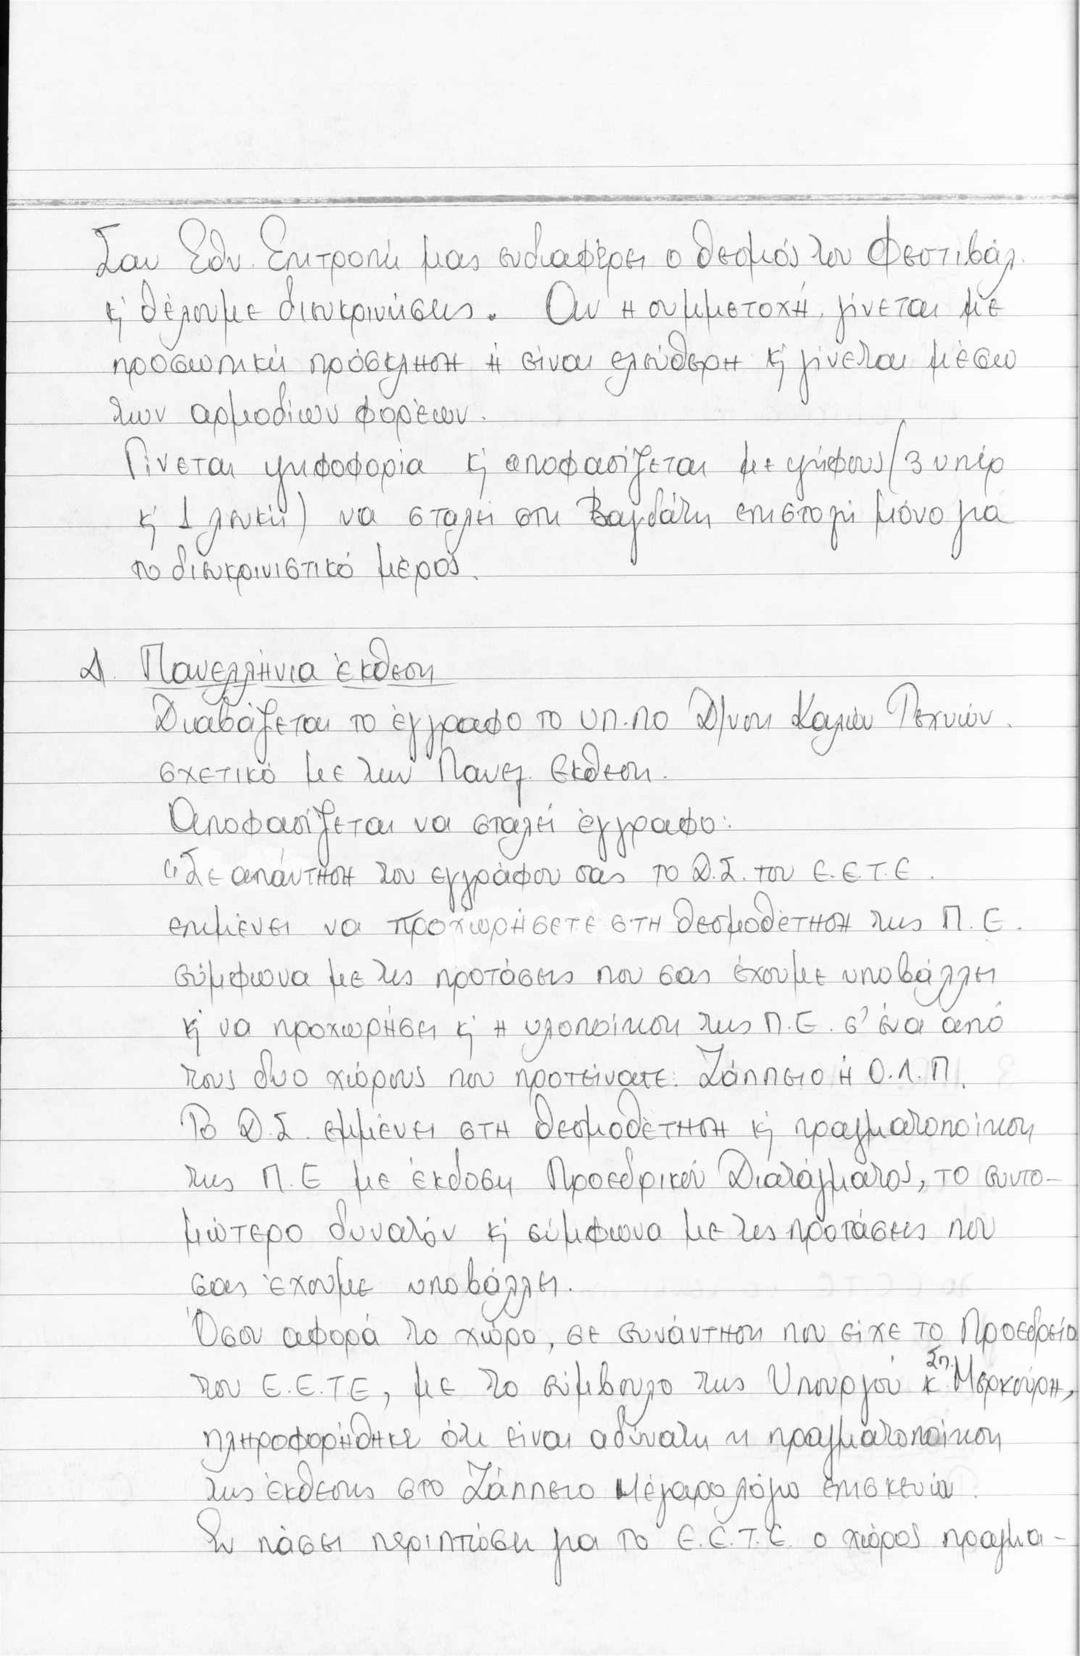 Σαν Εθν. Επιτροπή μας ενδιαφέρει ο θεσμός του Φεστιβάλ
κ' θέλουμε διευκρινήσεις. Αν η συμμετοχή γίνεται με
προσωπική πρόσκληση ή είναι ελεύθερη κ' γίνεται μέσω
των αρμοδίων φορέων.
Γίνεται ψηφοφορία κ' αποφασίζεται με ψήφους (3 υπέρ
κ' 1 λευκή) να σταλεί στη Βαγδάτη επιστολή μόνο για
το διευκρινιστικό μέρος.
Δ. Πανελλήνια έκθεση
Διαβάζεται το έγγραφο το ΥΠ.ΠΟ Δ/νση Καλών Τεχνών.
σχετικό με την Πανελ. έκθεση.
Αποφασίζεται να σταλεί έγγραφο:
"Σε απάντηση του εγγράφου σας το Δ.Σ. του Ε.Ε.Τ.Ε.
επιμένει να προχωρήσετε στη θεσμοθέτηση της Π.Ε.
σύμφωνα με τις προτάσεις που σας έχουμε υποβάλλει
κ' να προχωρήσει κ' η υλοποίηση της Π.Ε. σ' ένα από
τους δυο χώρους που προτείνατε: Ζάππειο ή Ο.Λ.Π.
Το Δ.Σ. εμμένει στη θεσμοθέτηση κ' πραγματοποίηση
της Π.Ε με έκδοση Προεδρικού Διατάγματος, το συντο-
μώτερο δυνατόν κ' σύμφωνα με τις προτάσεις που
σας έχουμε υποβάλλει.
Όσον αφορά το χώρο, σε συνάντηση που είχε το Προεδρείο
του Ε.Ε.ΤΕ, με το σύμβουλο της Υπουργού κ. Σπ. Μερκούρη,
πληροφορήθηκε ότι είναι αδύνατη η πραγματοποίηση
της έκθεσης στο Ζάππειο Μέγαρο λόγω επισκευών.
Εν πάσει περιπτώσει για το Ε.Ε.Τ.Ε. ο χώρος πραγμα-